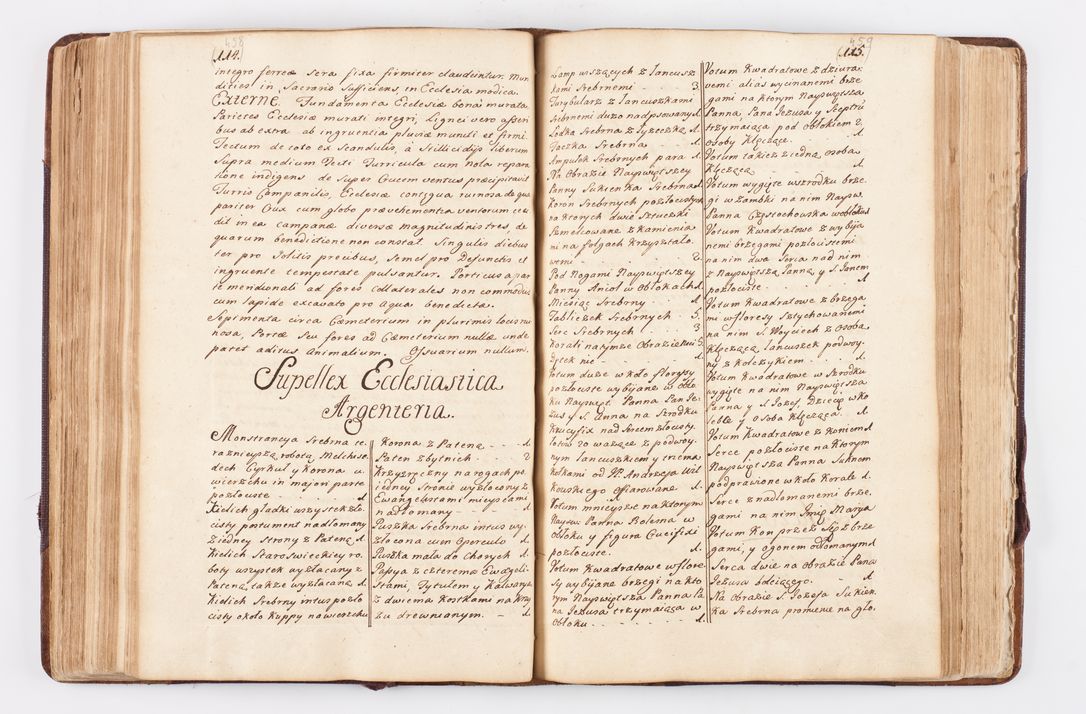 458
(114.
integro ferreæ sera fixa firmiter claudeintur. Mun
dities in, Sacrario Sufficiens, in Ecclesia modica.
Externe. Fundamenta Ecclesiæ bona murata
Parietes Ecclesiæ murati integri, Lignei vero asseri
bus ab extra ab ingruentia pluviæ muniti et firmi.
Tectum de toto ex Scandulis, à Stillicidijs liberum
Supra medium Tecti Turricula cum nola repara
tione indigens de Super Crucem ventus præcipitavit
Turris Campanilis, Ecclesiæ contigua ruinosa de qua
pariter Crux cum globo præ vehementia ventorum ceci
dit in ea campanæ diversæ magnitudinis tres, de
quarum benedictione non constat. Singulis diebus
ter pro Solitis precibus, Semel pro Defunctis et
ingruente tempestate pulsantur. Porticus a par
te meridionali ad fores collaterales non commodus
cum lapide excavato pro aqua benedicta.
Sepimenta circa Cœmeterium in plurimis locis rui
nosa, Portæ Seu fores ad Cœmeterium nullæ unde
patet aditus animalium. Ossuarium nullum.
Supellex Ecclesiastica
Argenteria.
Monstrancya Srebrna te
raznieyszą robotą Melchise
dech Cyrkuł y Korona u
wierzchu in majori parte
pozłociste
Kielich gładki wszystek zło
cisty postument nadłomany
z iedney strony z Pateną 1.
Kielich Staroswieckiey ro
boty wszystek wyzłacany z
Pateną także wyzłacaną 1.
Kielich Srebrny intus pozło
cisty około Kuppy na wierzchu
Korona z Pateną 1.
Paten zbytnich 2
Krzyż ręczny na rogach po
iedney Stronie wyzłocony z
Ewangelistami mieyscami
nadłomany 1.
Puszka Srebrna intus wy
złocona cum Operculo 1.
Puszka mała do Chorych 1.
Passya z czterema Ewageli
stami, Tytułem y Kalwaryą
z dwiema Kostkami na Krzy
żu drewnianym. 1.
459
(115.
Lamp wiszących z łancusz
kami Srebrnemi 3.
Turybularz z łancuszkami
Srebrnemi dużo nadpsowany 1.
Łodka Srebrna z Łyżeczką 1.
Taczka Srebrna 1.
Ampułek Srebrnych para 1.
Na Obrazie Nayswiętszey
Panny Sukienka Srebrna 1.
Koron Srebrnych pozłocistych
na ktorych dwie Sztuczki
Szmelcowane z kamienia
mi na folgach Krzyształo
wemi 2.
Pod Nogami Nayswiętszey
Panny Anioł w Obłokach 1.
Miesiąc Srebrny 1.
Tabliczek Srebrnych 5.
Serc Srebrnych 3
Korali na tymże Obrazie 5.
dętek nie 1.
Votum duże w koło florysy
pozłociste wybijane w obło
ku Nayswięt. Panna Pan Je
zus y S. Anna na Srodku
Krucyfix nad Sercem złocisty
łotow 20 ważące z podwoy
nym łancuszkiem y trzema
kotkami od JP. Andrzeja Wit
kowskiego Ofiarowane 1.
Votum mnieysze na ktorym
Nayśw: Panna Bolesna w
Obłoku y figura Crucifixi
pozłociste. 1.
Votum Kwadratowe w flore
sy wybijane brzegi na kto
rym Nayswiętsza Panna Pa
na Jezusa trzymaiąca w
Obłoku 1.
Votum Kwadratowe z dziura
wemi alias wycinanemi brze
gami na ktorym Nayswiętsza
Panna, Pana Jezusa y Sceptrũ
trzymaiąca pod obłokiem 2.
osoby Klęczące.
Votum takież z iedną osobą
Klęczącą 1.
Votum wygięte w srzodku brze
gi w Ząmbki na nim Nayśw.
Panna Częstochowska w obłokach
Votum Kwadratowe z wybija
nemi brzegami pozłocistemi
na nim dwa Serca nad nim
z Nayswiętszą Panną y S. Janem
pozłociste. 1.
Votum Kwadratowe z brzega
mi w floresy Sztychowanemi
na nim S. Woyciech z osobą
Klęczącą łancuszek podwoy
ny z kolczykiem. 1.
Votum Kwadratowe w Srodku
wygięte na nim Nayswiętsza
Panna y S. Jozef, Dziecię w ko
lebce y osoba Klęcząca. 1.
Votum Kwadratowe z Koniem 1.
Serce pozłociste na ktorym
Nayswiętsza Panna Suknem
podprawione w koło Korale 1.
Serce z nadłomanemi brze
gami na nim Imię Marya
Votum Kon przez Sęp z brze
gami, y ogonem odłomanym 1.
Serca dwie na obrazie Pana
Jezusa bolcijącego. 1.
Na Obrazie S. Jozefa Sukien
ka Srebrna promienie na gło.